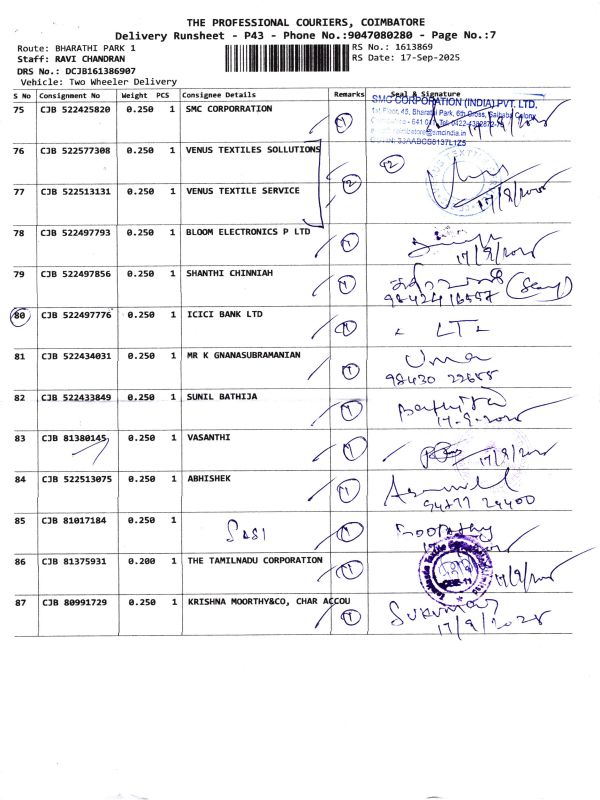 THE PROFESSIONAL COURIERS, COIMBATORE
Delivery Runsheet - P43 - Phone No.:9047080280 - Page No.:7
Route: BHARATHI PARK 1 RS No.: 1613869
Staff: RAVI CHANDRAN RS Date: 17-Sep-2025
DRS No.: DCJB161386907
Vehicle: Two Wheeler Delivery
S No Consignment No Weight PCS Consignee Details Remarks Seal & Signature
SMC CORPORATION (INDIA) PVT. LTD.
75 CJB 522425820 0.250 1 SMC CORPORRATION 1 17/9/2025
76 CJB 522577308 0.250 1 VENUS TEXTILES SOLLUTIONS 12
77 CJB 522513131 0.250 1 VENUS TEXTILE SERVICE 2 17/9/2025
78 CJB 522497793 0.250 1 BLOOM ELECTRONICS P LTD 1 17/9/2025
79 CJB 522497856 0.250 1 SHANTHI CHINNIAH 1
80 CJB 522497776 0.250 1 ICICI BANK LTD 1
81 CJB 522434031 0.250 1 MR K GNANASUBRAMANIAN 1 Uma
98430 22688
82 CJB 522433849 0.250 1 SUNIL BATHIJA 1 Bathija
17-9-2025
83 CJB 81380145 0.250 1 VASANTHI 1 17/9/2025
84 CJB 522513075 0.250 1 ABHISHEK 1
94877 29400
85 CJB 81017184 0.250 1 SASI 1 Boopathy
86 CJB 81375931 0.200 1 THE TAMILNADU CORPORATION 1 17/9/2025
87 CJB 80991729 0.250 1 KRISHNA MOORTHY&CO, CHAR ACCOU 1 Sukumar
17/9/2025